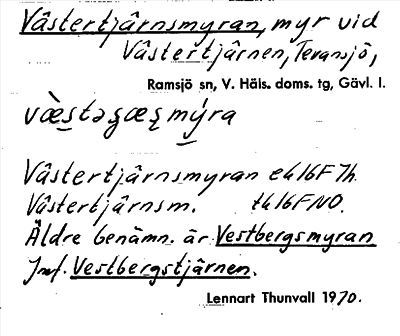 Västertjärnsmyran, myr vid
Västertjärnen, Tevansjö,
Ramsjö sn, V. Häls. doms. tg, Gävl. l.
Västertjärnsmyran ek16F7h
Västertjärnsm. tk16FNO.
Äldre benämn. är Vestbergsmyran
Jmf. Vestbergstjärnen.
Lennart Thunvall 1970.